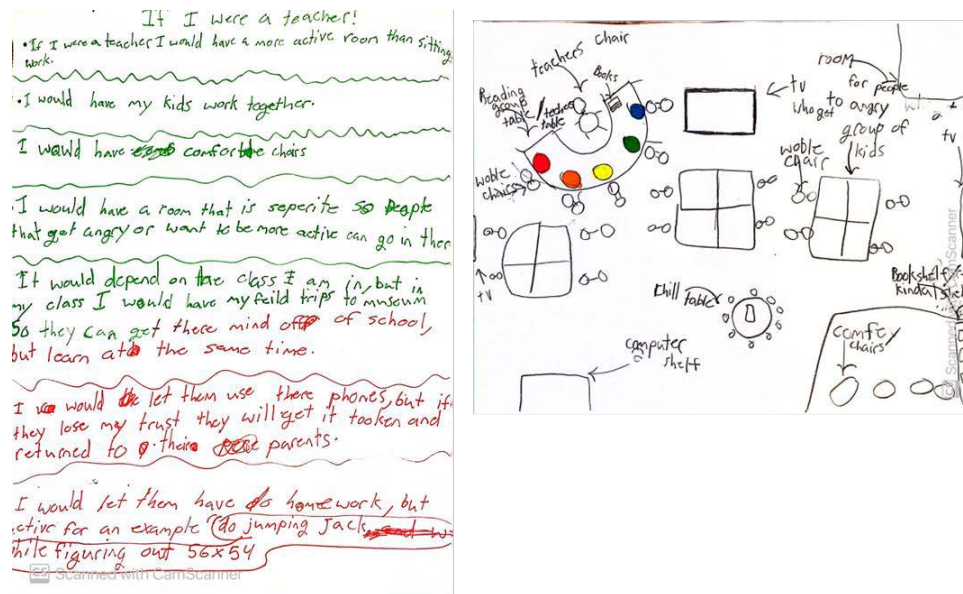 If I were a teacher!
• If I were a teacher I would have a more active room than sitting
work.
• I would have my kids work together.
I would have comfortable chairs
• I would have a room that is seperite so people
that get angry or want to be more active can go in ther
It would depend on the class I am in, but in
my class I would have my feild trips to museum
So they can get there mind off of school,
but learn at the same time.
I would let them use there phones, but if
they lose my trust they will get it tooken and
returned to their parents.
I would let them have homework, but
active for an example (do jumping jack
while figuring out 56x54
CS Scanned with CamScanner
teachers chair
Books
Reading group table / teachers table
woble chairs
tv
room for people who get to angry
tv
group of kids
woble chair
tv
Chill table
computer shelf
Bookshelf kinda
comfey chairs
CS Scanned with CamScanner